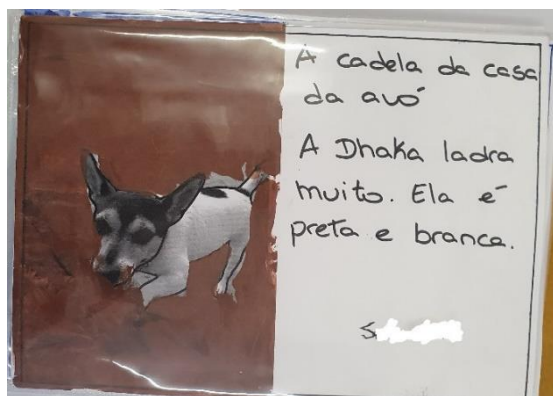 A cadela da casa
da avó
A Dhaka ladra
muito. Ela é
preta e branca.